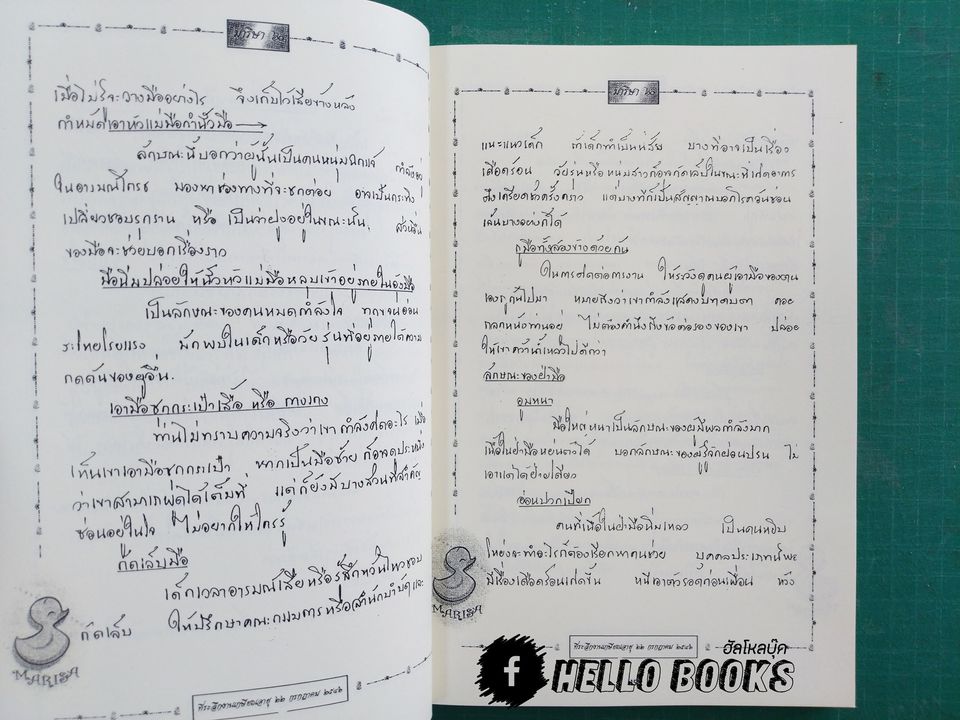 มาริษา
เมื่อไม่รู้จะวางมืออย่างไร จึงเก็บไว้เสียข้างหลัง
กำหมัดเอาหัวแม่มือกำนิ้วมือ →
ลักษณะนี้บอกว่าผู้นั้นเป็นคนหมกมุ่น กำลังอยู่
ในอารมณ์โกรธ มองหาช่องทางที่จะชกต่อย อาจเป็นกระทิง
เปลี่ยวชอบรุกราน หรือ เป็นจ่าฝูงอยู่ในขณะนั้น, ส่วนอื่น
ของมือจะช่วยบอกเรื่องราว
มือนิ่มปล่อยให้นิ้วหัวแม่มือหลุบเข้าอยู่ภายในอุ้งมือ
เป็นลักษณะของคนหมดกำลังใจ ทุกข์จนอ่อน
ระโหยโรยแรง มักพบในเด็กหรือวัยรุ่นที่อยู่ภายใต้ความ
กดดันของผู้อื่น.
เอามือซุกกระเป๋าเสื้อ หรือ กางเกง
ท่านไม่ทราบความจริงว่าเขากำลังคิดอะไร เมื่อ
เห็นเขาเอามือซุกกระเป๋า หากเป็นมือซ้าย ก็อาจประหนึ่ง
ว่าเขาสามารถพูดได้เต็มที่ แต่ก็ยังมีบางส่วนที่สำคัญ
ซ่อนอยู่ในใจ ไม่อยากให้ใครรู้
กัดเล็บมือ
เด็กเวลาอารมณ์เสียหรือรู้สึกหวั่นไหวชอบ
กัดเล็บ ให้ปรึกษาคณะกรรมการหรือสำนักบำบัดและ
MARISA
ที่ระลึกงานเกษียณอายุ ๒๒ กรกฎาคม ๒๕๔๒
มาริษา
แนะแนวเด็ก ที่เด็กทำเป็นนิสัย บางทีอาจเป็นเรื่อง
เดือดร้อน วัยรุ่นหรือหนุ่มสาวก็อาจกัดเล็บในขณะที่เกิดอาการ
ตึงเครียดชั่วครั้งคราว แต่บางทีก็เป็นสัญญาณบอกโรคอันซ่อน
เร้นบางอย่างก็ได้
ถูมือทั้งสองข้างด้วยกัน
ในการติดต่อการงาน ให้ระวังดูคนผู้เอามือของตน
เองถูกันไปมา หมายถึงว่าเขากำลังแสดงบทตบตา คอย
ถลกหนังท่านอยู่ ไม่ต้องคำนึงถึงข้อต่อรองของเขา ปล่อย
ให้เขาคว้าน้ำเหลวไปดีกว่า
ลักษณะของฝ่ามือ
อูมหนา
มือใหญ่หนาเป็นลักษณะของผู้มีพลกำลังมาก
เนื้อในฝ่ามือหย่นตัวได้ บอกลักษณะของผู้รู้จักผ่อนปรน ไม่
เอาแต่ได้ฝ่ายเดียว
อ่อนปวกเปียก
คนที่เนื้อในฝ่ามือนิ่มเหลว เป็นคนหยิบ
โหย่งจะทำอะไรก็ต้องเรียกหาคนช่วย บุคคลประเภทนี้พอ
มีเรื่องเดือดร้อนเกิดขึ้น หนีเอาตัวรอดก่อนเพื่อน หวัง
MARISA
ที่ระลึกงานเกษียณอายุ ๒๒ กรกฎาคม ๒๕๔๒
ฮัลโหลบุ๊ค
f HELLO BOOKS